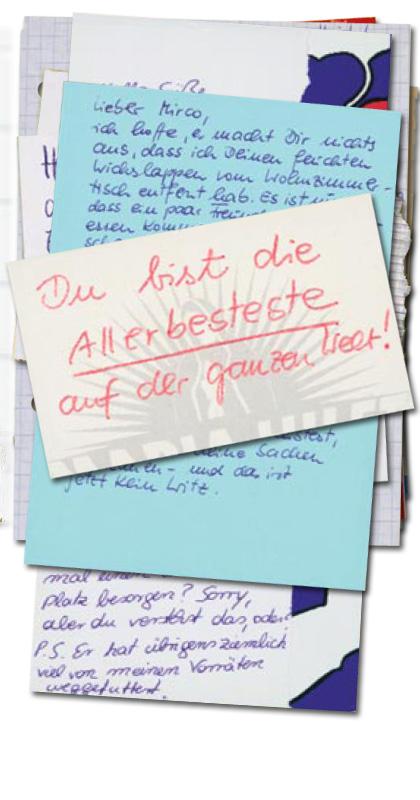 Lieber Mirco,
ich hoffe, es macht Dir nichts
aus, dass ich Deinen feuchten
Wichslappen vom Wohnzimmer-
tisch entfernt hab. Es ist
dass ein paar
essen
Du bist die
Allerbesteste
auf der ganzen Welt!
deine Sachen
und das ist
jetzt kein Witz.
mal
platz besorgen? Sorry,
aber du verstehst das, oder?
P.S. Er hat übrigens ziemlich
viel von meinen Vorräten
weggefuttert.